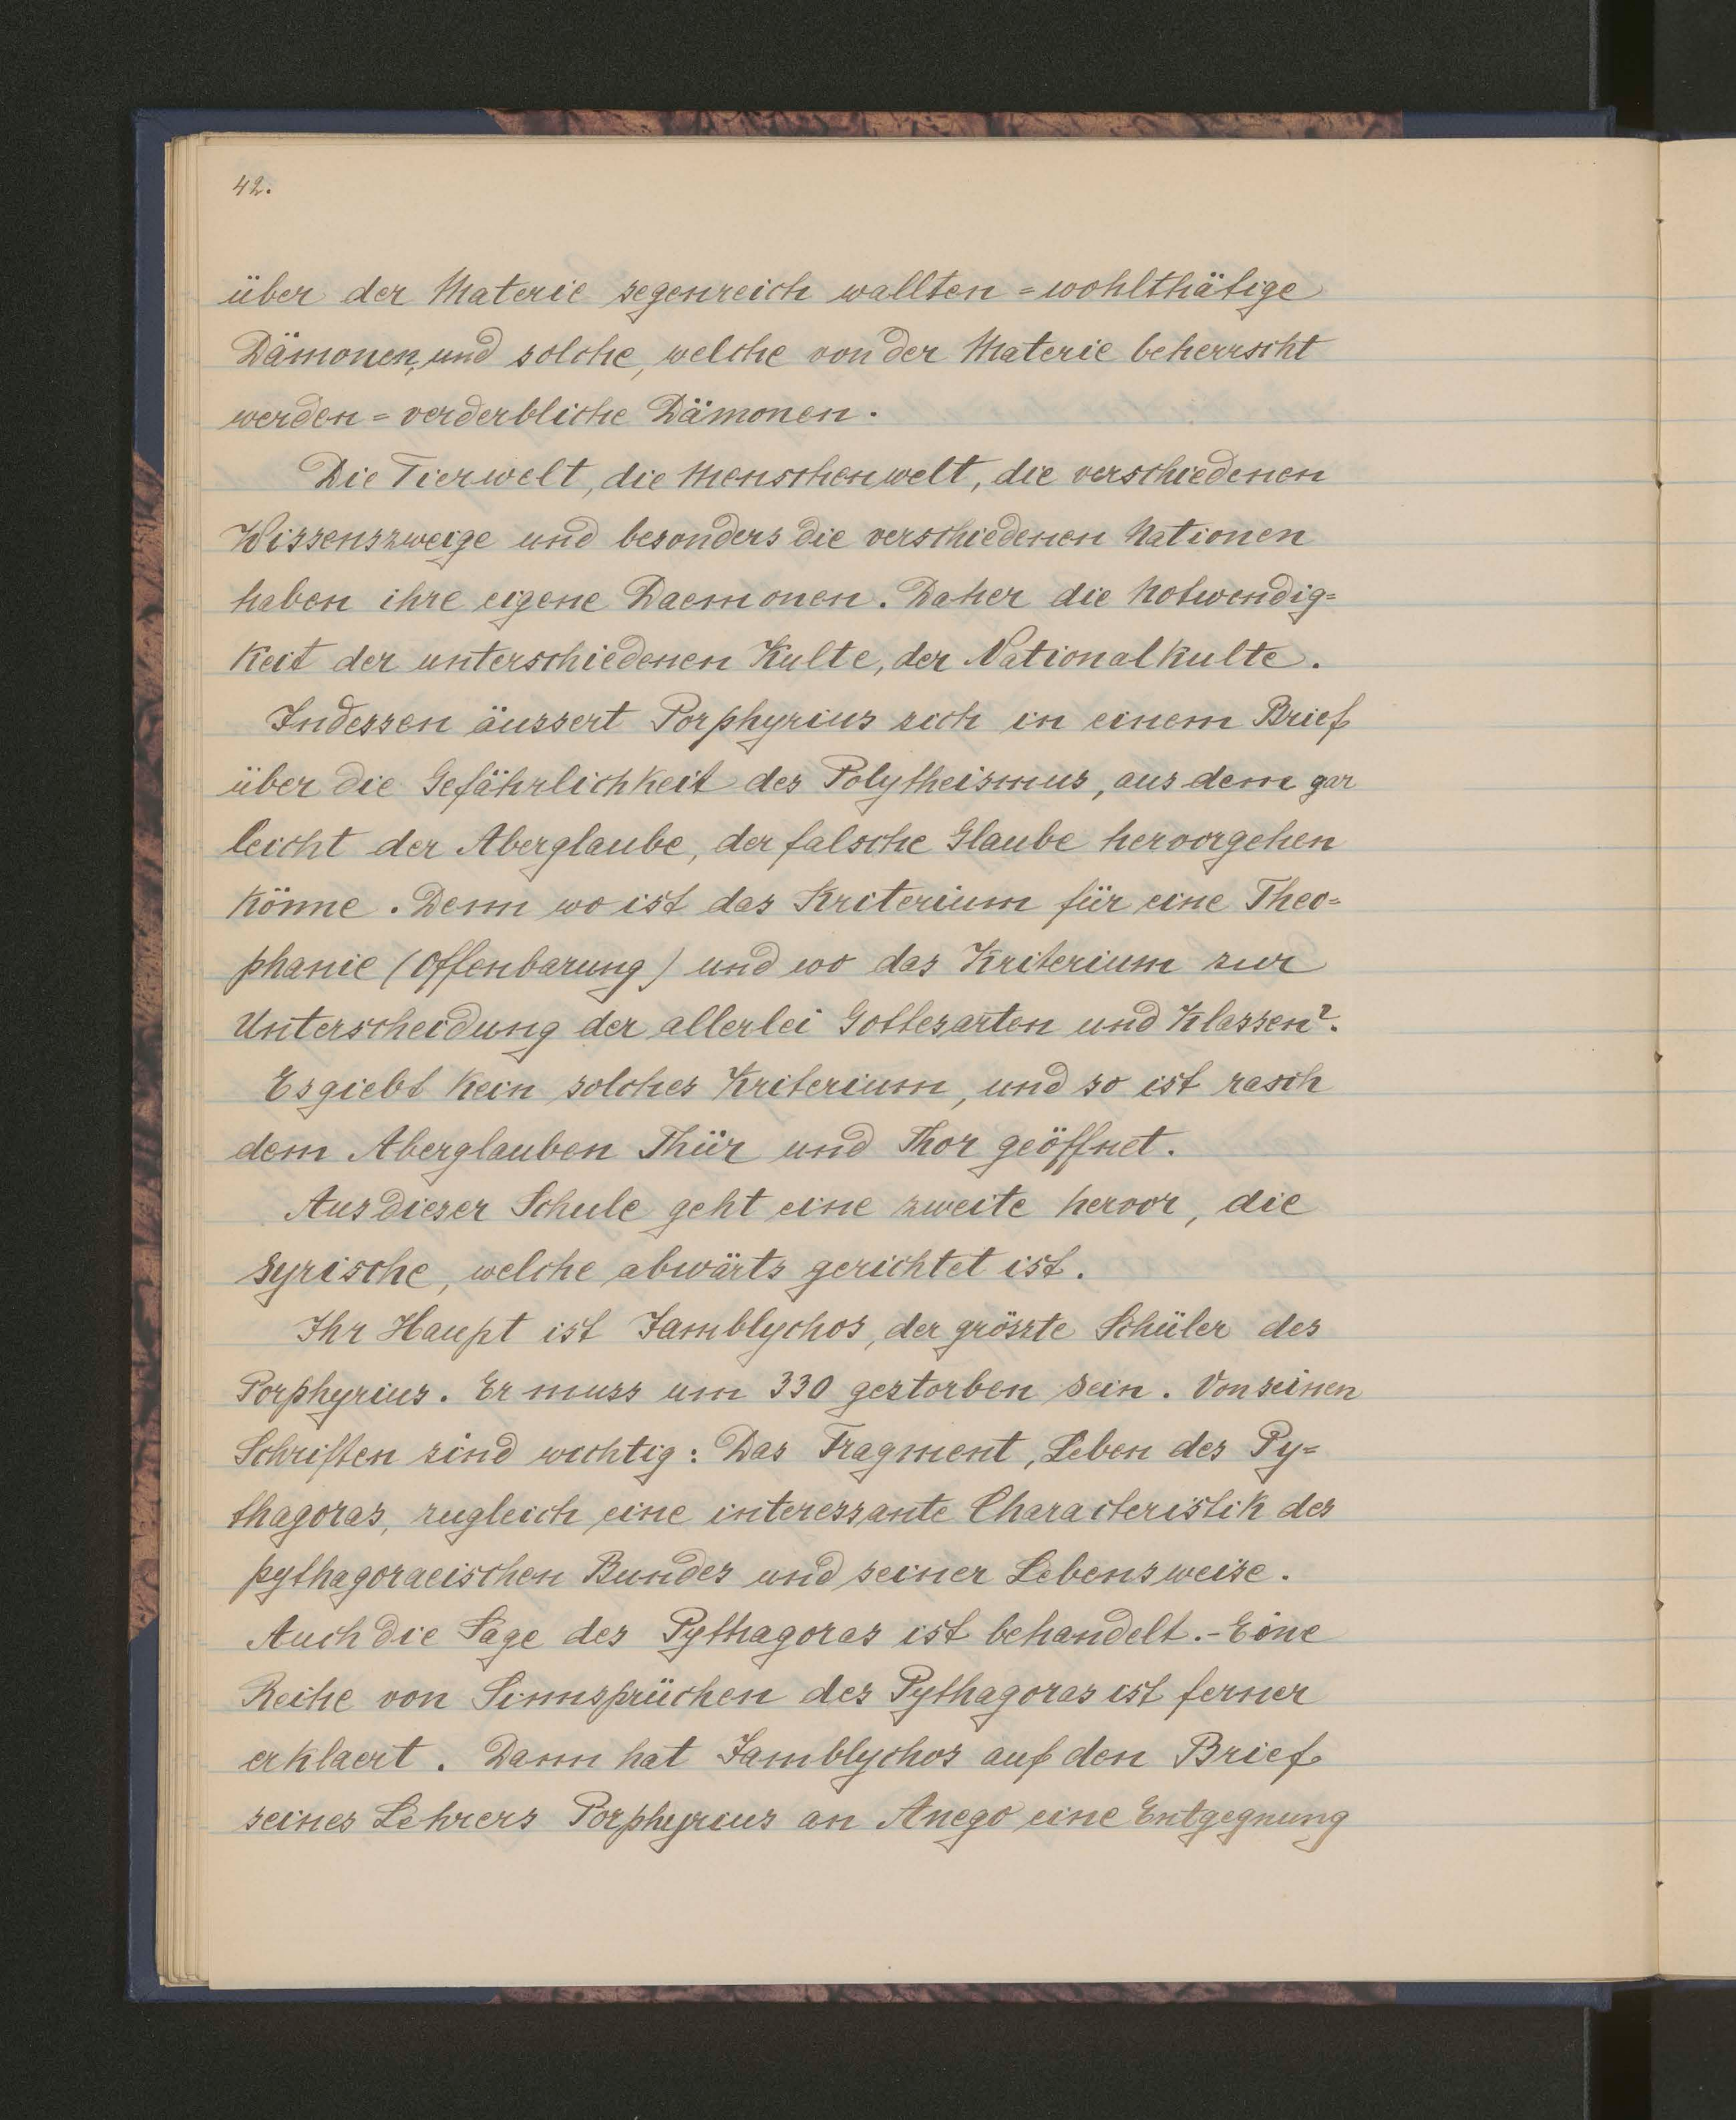 42.
über der Materie segenreich wallten = wohlthätige
Dämonen, und solche, welche von der Materie beherrscht
werden = verderbliche Dämonen.
Die Tierwelt, die Menschenwelt, die verschiedenen
Wissenszweige und besonders die verschiedenen Nationen
haben ihre eigene Daemonen. Daher die Notwendig=
keit der unterschiedenen Kulte, der Nationalkulte.
Indessen äussert Porphyrius sich in einem Brief
über die Gefährlichkeit des Polytheismus, aus dem gar
leicht der Aberglaube, der falsche Glaube hervorgehen
könne. Denn wo ist das Kriterium für eine Theo=
phanie (Offenbarung) und wo das Kriterium zur
Unterscheidung der allerlei Gottesarten und Klassen?.
Es giebt kein solches Kriterium, und so ist rasch
dem Aberglauben Thür und Thor geöffnet.
Aus dieser Schule geht eine zweite hervor, die
syrische, welche abwärts gerichtet ist.
Ihr Haupt ist Jamblychos, der grösste Schüler des
Porphyrius. Er muss um 330 gestorben sein. Von seinen
Schriften sind wichtig: Das Fragment, Leben des Py=
thagoras, zugleich eine interessante Characteristik des
pythagoraeischen Bundes und seiner Lebensweise.
Auch die Sage des Pythagoras ist behandelt. - Eine
Reihe von Sinnsprüchen des Pythagoras ist ferner
erklaert. Dann hat Jamblychos auf den Brief
seines Lehrers Porphyrius an Anego eine Entgegnung